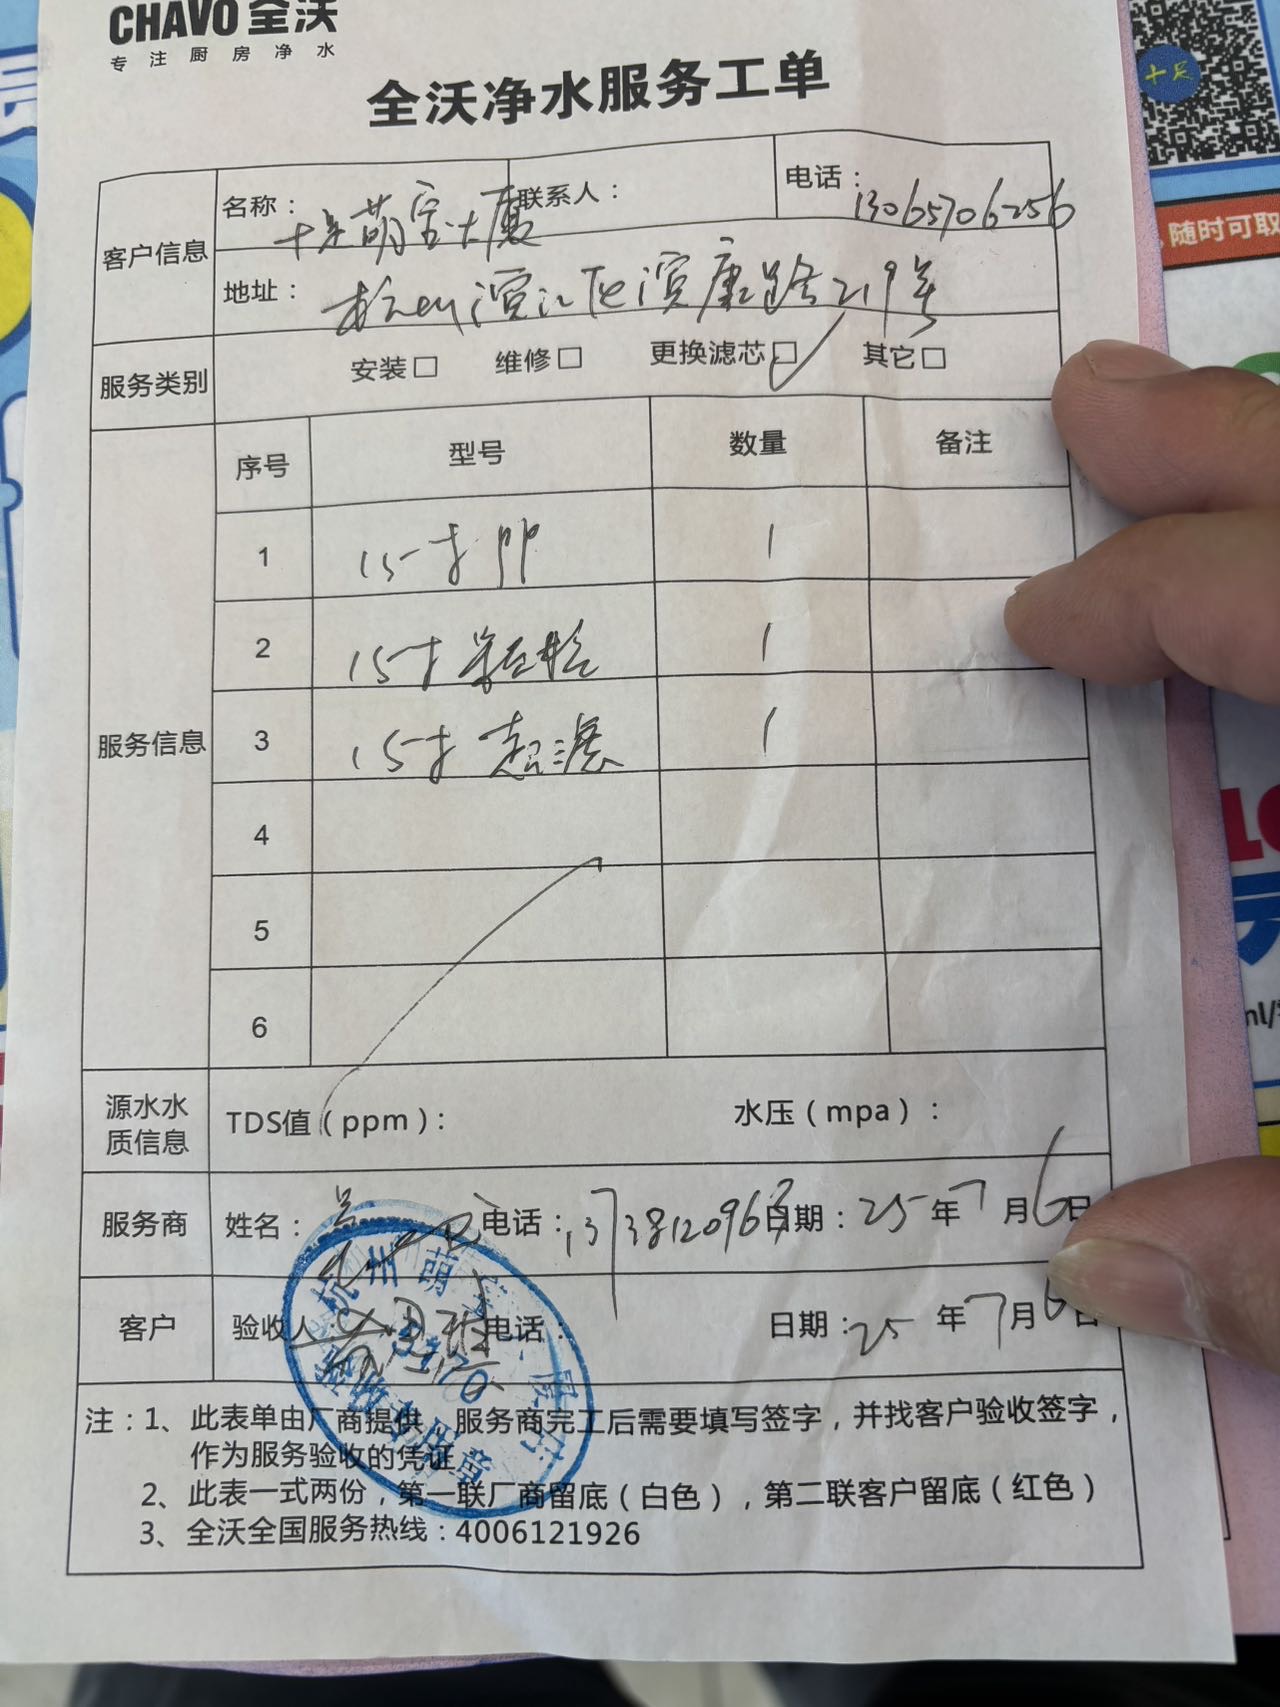 CHAVO 全沃
专注厨房净水
全沃净水服务工单
十足
随时可取
客户信息
名称： 十足萌宝大厦 联系人： 电话： 13065706256
地址： 杭州滨江区滨康路219号
服务类别 安装□ 维修□ 更换滤芯□✓ 其它□
服务信息
序号 型号 数量 备注
1 15寸PP 1
2 15寸 1
3 15寸超滤 1
4
5
6
源水水质信息 TDS值（ppm）： 水压（mpa）：
服务商 姓名： 电话： 日期：25年7月6日
客户 验收人 电话： 日期：25年7月6日
注：1、此表单由厂商提供，服务商完工后需要填写签字，并找客户验收签字，
作为服务验收的凭证
2、此表一式两份，第一联厂商留底（白色），第二联客户留底（红色）
3、全沃全国服务热线：4006121926